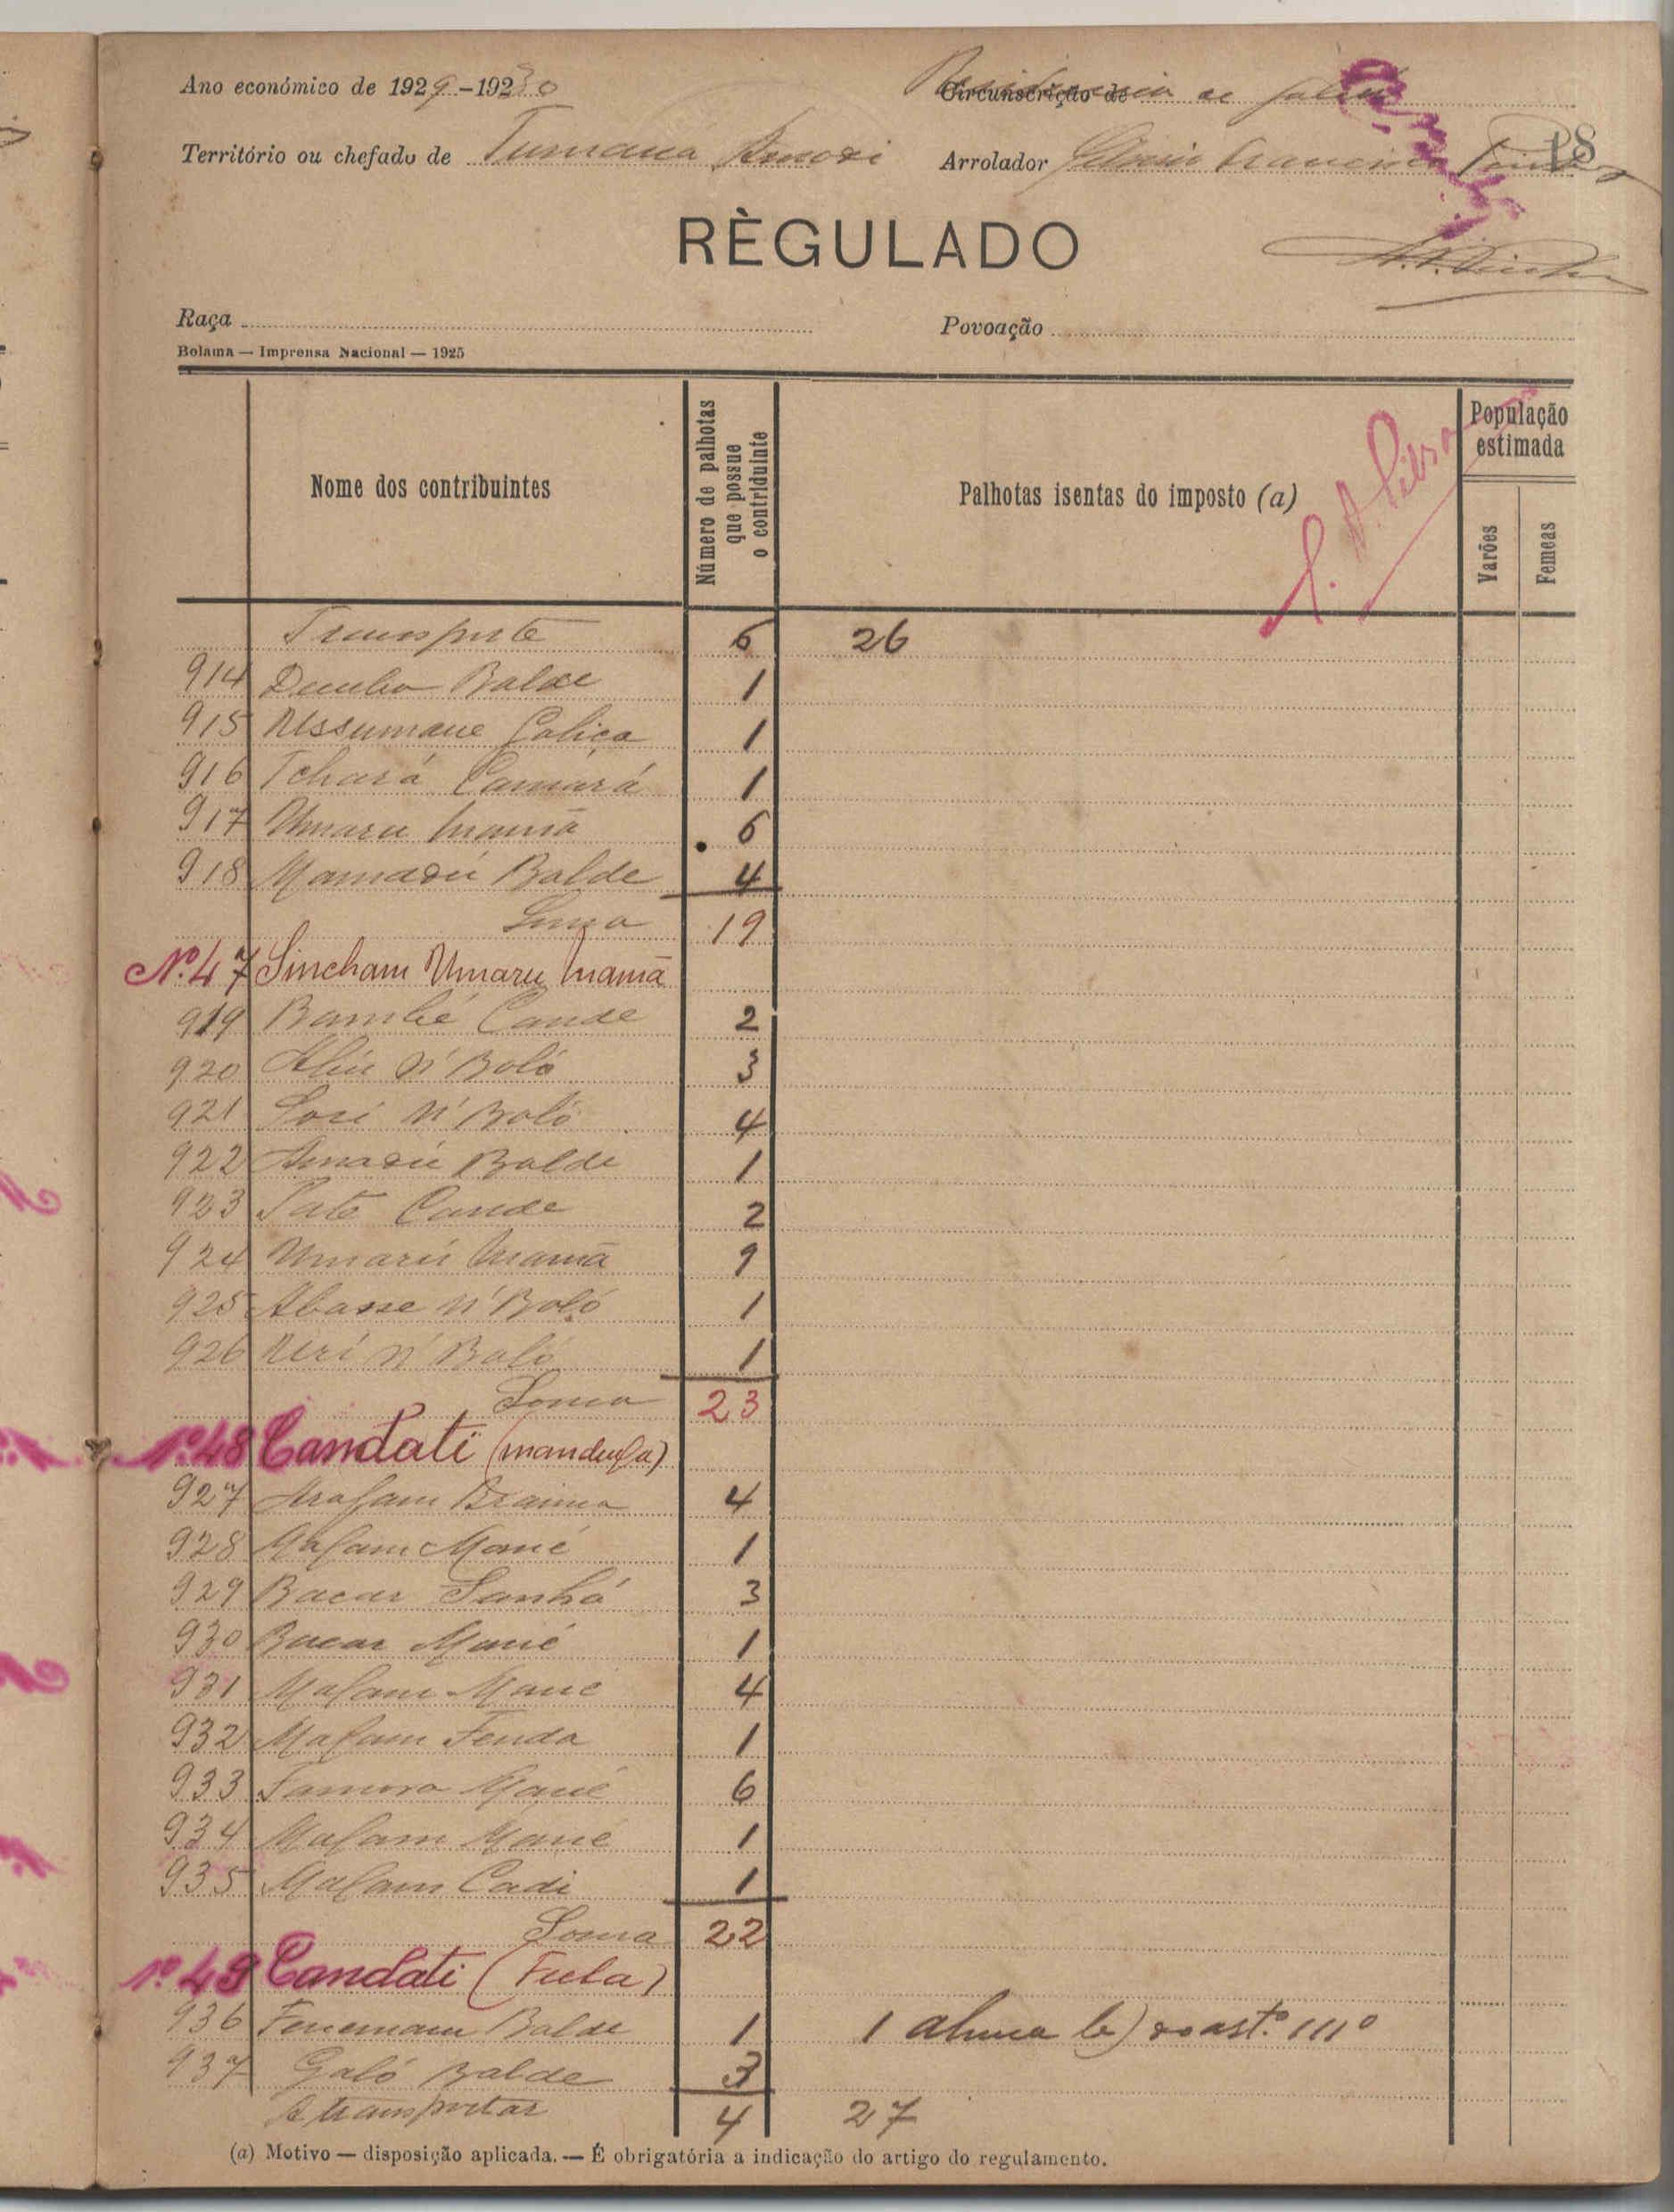 Ano económico de 1929-1930
Circunscrição de
Território ou chefado de Tumana
Arrolador Francisco
18
RÈGULADO
Raça
Povoação
Bolama — Imprensa Nacional — 1925
Nome dos contribuintes
Número de palhotas que possue o contriduinte
Palhotas isentas do imposto (a)
População estimada
Varões
Femeas
Transporte 6 26
914 Demba Balde 1
915 Ussumane Galiça 1
916 Tchará Camará 1
917 Umaru Mamã 6
918 Mamadú Balde 4
Soma 19
Nº 47 Sincham Umaru Mamã
919 Bambé Cande 2
920 Aliú N'Boló 3
921 Sori N'Boló 4
922 Amadú Balde 1
923 Pate Cande 2
924 Umarú Mamã 9
925 Abasse N'Boló 1
926 N'Boló 1
Soma 23
Nº 48 Candati (mandinga)
927 Arafam Braima 4
928 Malam Mané 1
929 Bacar Sanhá 3
930 Bacar Mané 1
931 Malam Mané 4
932 Malam Fenda 1
933 Mané 6
934 Malam Mané 1
935 Malam Cadi 1
Soma 22
Nº 49 Candati (Fula)
936 Balde 1 1 b) do artº 111º
937 Galó Balde 3
A transportar 4 27
(a) Motivo — disposição aplicada. — É obrigatória a indicação do artigo do regulamento.